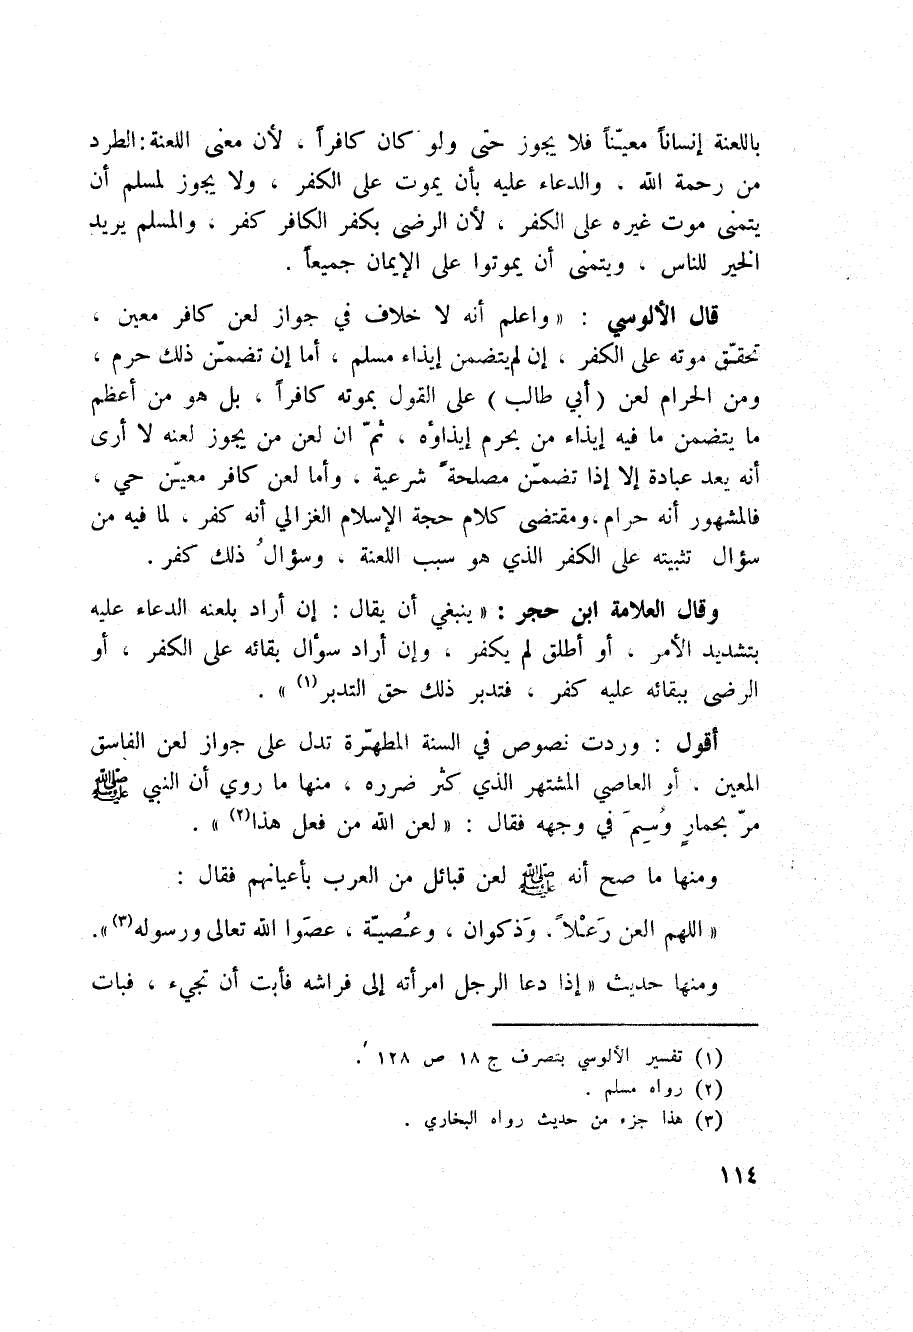 باللعنة إنساناً معيّناً فلا يجوز حتى ولو كان كافراً ، لأن معنى اللعنة : الطرد
من رحمة الله ، والدعاء عليه بأن يموت على الكفر ، ولا يجوز لمسلم أن
يتمنى موت غيره على الكفر ، لأن الرضى بكفر الكافر كفر ، والمسلم يريد
الخير للناس ، ويتمنى أن يموتوا على الإيمان جميعاً .
قال الألوسي : « واعلم أنه لا خلاف في جواز لعن كافر معين ،
تحقّق موته على الكفر ، إن لم يتضمن إيذاء مسلم ، أما إن تضمّن ذلك حرم ،
ومن الحرام لعن ( أبي طالب ) على القول بموته كافراً ، بل هو من أعظم
ما يتضمن ما فيه إيذاء من يحرم إيذاؤه ، ثمّ ان لعن من يجوز لعنه لا أرى
أنه يعد عبادة إلا إذا تضمّن مصلحةً شرعية ، وأما لعن كافر معيّن حي ،
فالمشهور أنه حرام ، ومقتضى كلام حجة الإسلام الغزالي أنه كفر ، لما فيه من
سؤال تثبيته على الكفر الذي هو سبب اللعنة ، وسؤالُ ذلك كفر .
وقال العلامة ابن حجر : « ينبغي أن يقال : إن أراد بلعنه الدعاء عليه
بتشديد الأمر ، أو أطلق لم يكفر ، وإن أراد سؤال بقائه على الكفر ، أو
الرضى ببقائه عليه كفر ، فتدبر ذلك حق التدبر(١) » .
أقول : وردت نصوص في السنة المطهّرة تدل على جواز لعن الفاسق
المعين . أو العاصي المشتهر الذي كثر ضرره ، منها ما روي أن النبي ﷺ
مرّ بحمارٍ وُسِمَ في وجهه فقال : « لعن الله من فعل هذا(٢) » .
ومنها ما صح أنه ﷺ لعن قبائل من العرب بأعيانهم فقال :
« اللهم العن رَعْلاً ، وَذكوان ، وعُصيّة ، عصَوا الله تعالى ورسوله(٣) ».
ومنها حديث « إذا دعا الرجل امرأته إلى فراشه فأبت أن تجيء ، فبات
(١) تفسير الألوسي بتصرف ج ١٨ ص ١٢٨ .
(٢) رواه مسلم .
(٣) هذا جزء من حديث رواه البخاري .
١١٤